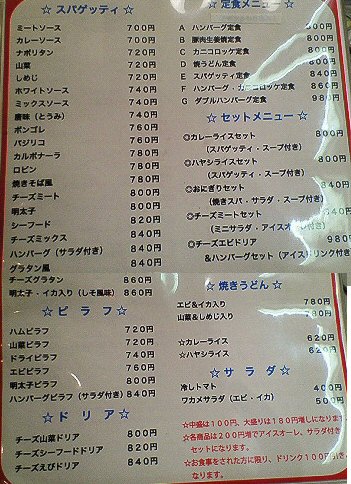 ☆ スパゲッティ ☆
ミートソース 700円
カレーソース 700円
ナポリタン 720円
山菜 720円
しめじ 720円
ホワイトソース 740円
ミックスソース 740円
唐味(とうみ) 740円
ボンゴレ 760円
バジリコ 760円
カルボナーラ 760円
ロビン 780円
焼きそば風 780円
チーズミート 800円
明太子 800円
シーフード 820円
チーズミックス 840円
ハンバーグ(サラダ付き) 840円
グラタン風 840円
チーズグラタン 860円
明太子・イカ入り(しそ風味) 860円
☆ ピラフ ☆
ハムピラフ 720円
山菜ピラフ 720円
ドライピラフ 740円
エビピラフ 760円
明太子ピラフ 800円
ハンバーグピラフ(サラダ付き) 840円
☆ ドリア ☆
チーズ山菜ドリア 800円
チーズシーフードドリア 820円
チーズえびドリア 840円
☆ 定食メニュー ☆
A ハンバーグ定食 800円
B 豚肉生姜焼定食 800円
C カニコロッケ定食 800円
D 焼うどん定食 800円
E スパゲティ定食 840円
F ハンバーグ・カニコロッケ定食 860円
G ダブルハンバーグ定食 980円
☆ セットメニュー ☆
◎カレーライスセット 800円
(スパゲッティ・スープ付き)
◎ハヤシライスセット 800円
(スパゲッティ・スープ付き)
◎おにぎりセット 840円
(焼きスパ・サラダ・スープ付き)
◎チーズミートセット 840円
(ミニサラダ・アイスオーレ付き)
◎チーズエビドリア 980円
&ハンバーグセット(アイスドリンク付き)
☆焼きうどん☆
エビ&イカ入り 780円
山菜&しめじ入り 780円
☆カレーライス 620円
☆ハヤシライス 620円
☆ サラダ ☆
冷しトマト 400円
ワカメサラダ(エビ・イカ) 500円
☆中盛は100円、大盛りは180円増しになります。
☆各商品は200円増でアイスオーレ、サラダ付き
セットになります。
☆お食事をされた方に限り、ドリンク100円引き
なります。